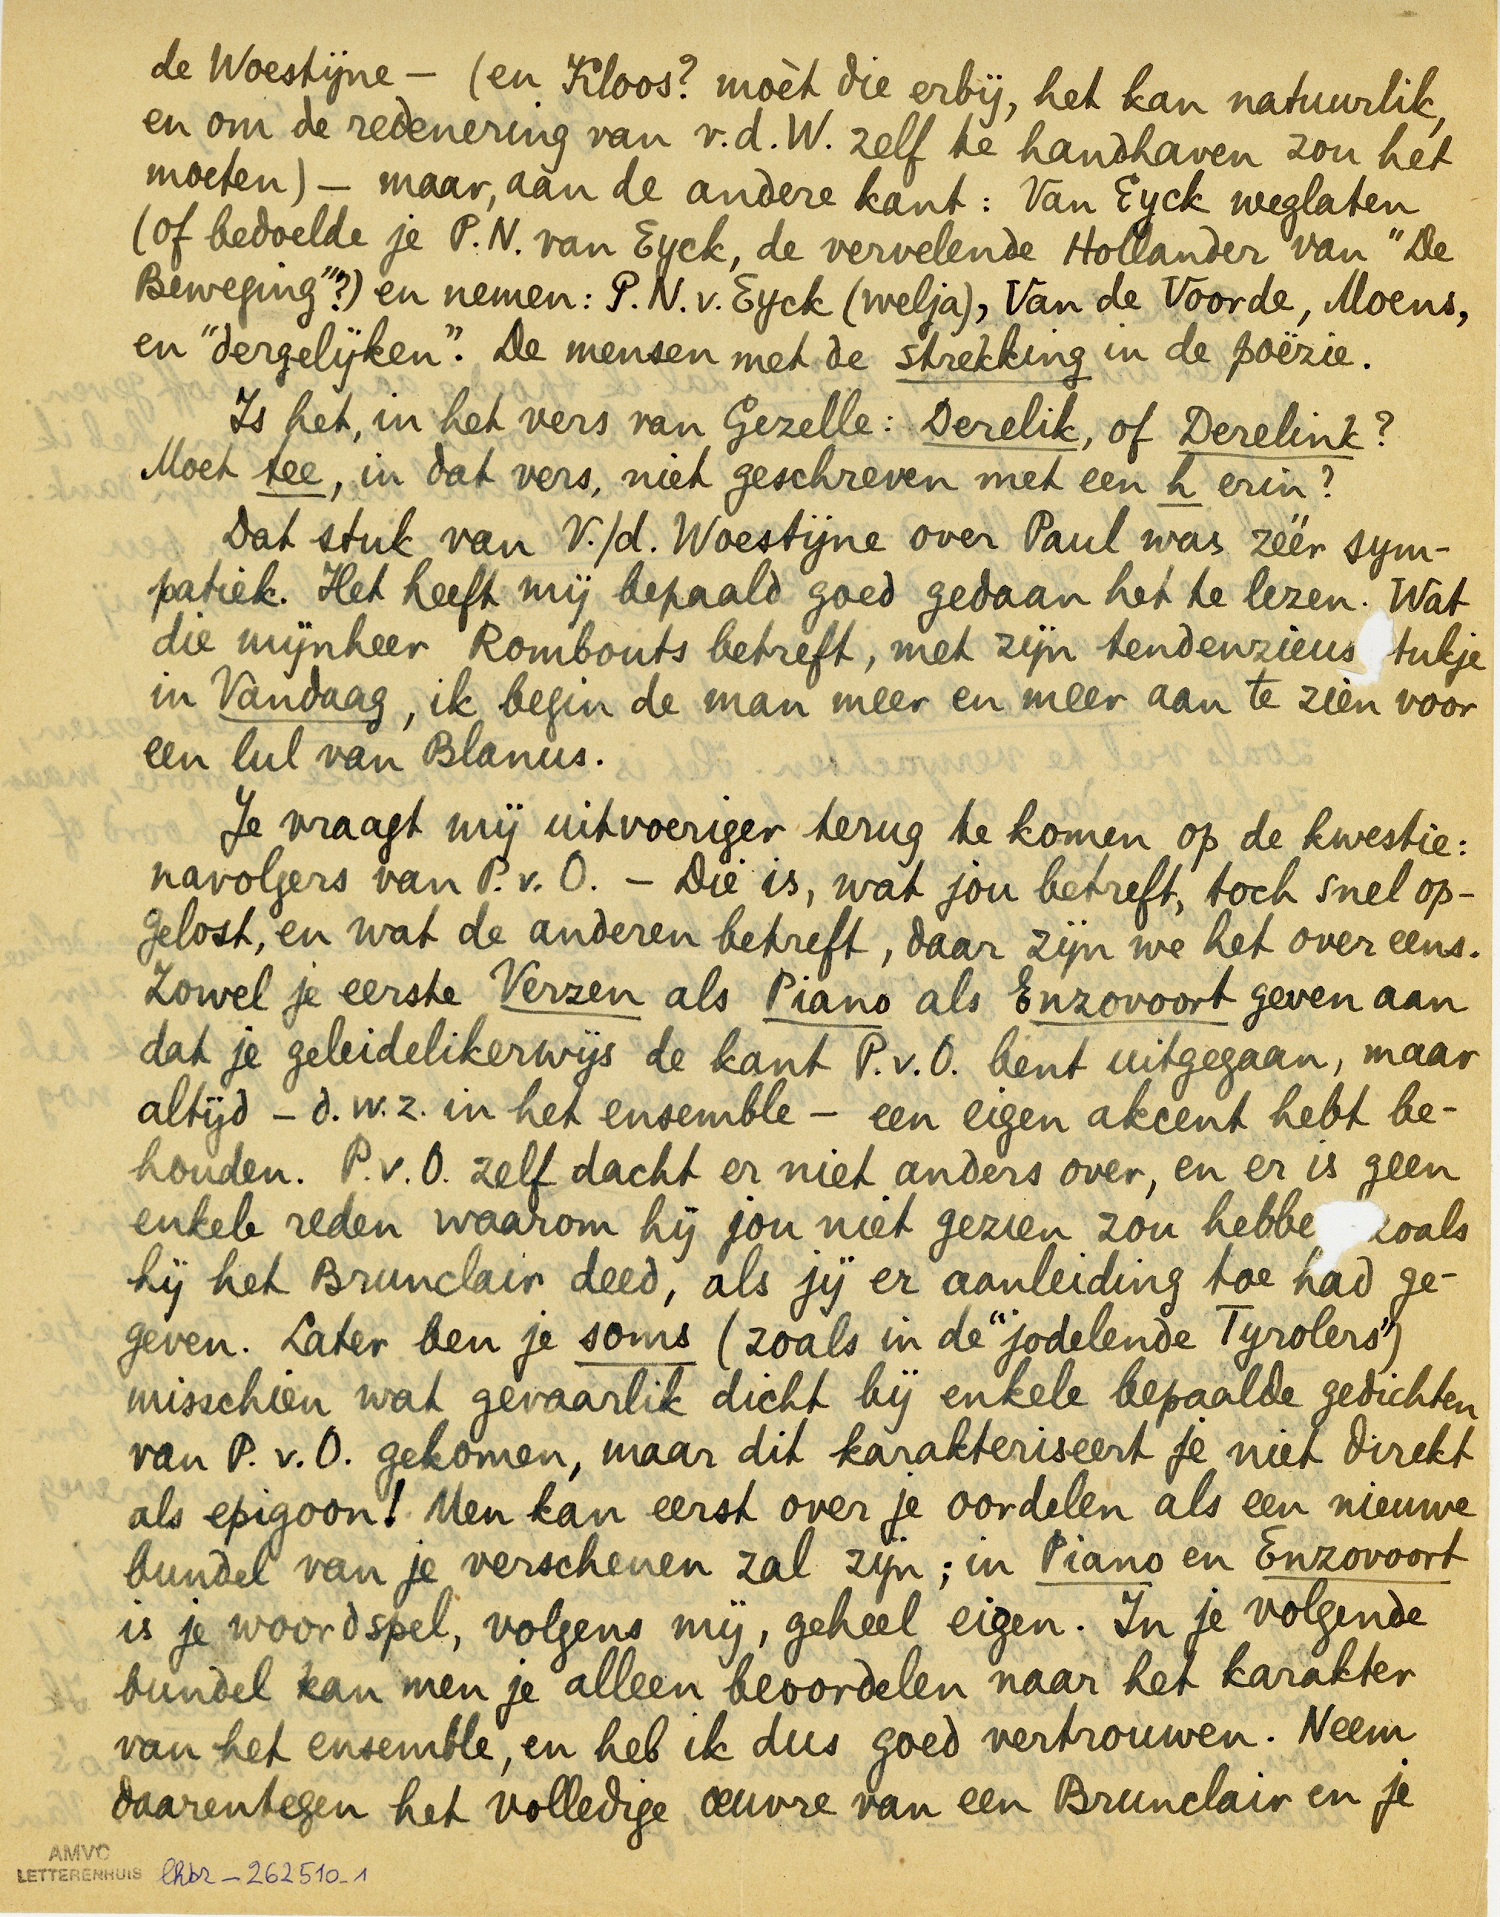 de Woestijne — (en Kloos? moèt die erbij, het kan natuurlik,
en om de redenering van v.d.W. zelf te handhaven zou het
moeten) — maar, aan de andere kant: Van Eyck weglaten
(of bedoelde je P.N. van Eyck, de vervelende Hollander van "De
Beweging"?) en nemen: P.N.v.Eyck (welja), Van de Voorde, Moens,
en "dergelijken". De mensen met de strekking in de poëzie.
Is het, in het vers van Gezelle: Derelik, of Derelink?
Moet tee, in dat vers, niet geschreven met een h erin?
Dat stuk van V./d. Woestijne over Paul was zéér sym-
patiek. Het heeft mij bepaald goed gedaan het te lezen. Wat
die mijnheer Rombouts betreft, met zijn tendenzieus tukje
in Vandaag, ik begin de man meer en meer aan te zien voor
een lul van Blanus.
Je vraagt mij uitvoeriger terug te komen op de kwestie:
navolgers van P.v.O. — Die is, wat jou betreft, toch snel op-
gelost, en wat de anderen betreft, daar zijn we het over eens.
Zowel je eerste Verzen als Piano als Enzovoort geven aan
dat je geleidelikerwijs de kant P.v.O. bent uitgegaan, maar
altijd — d.w.z. in het ensemble — een eigen akcent hebt be-
houden. P.v.O. zelf dacht er niet anders over, en er is geen
enkele reden waarom hij jou niet gezien zou hebbe zoals
hij het Brunclair deed, als jij er aanleiding toe had ge-
geven. Later ben je soms (zoals in de "jodelende Tyrolers")
misschien wat gevaarlik dicht bij enkele bepaalde gedichten
van P.v.O. gekomen, maar dit karakteriseert je niet direkt
als epigoon! Men kan eerst over je oordelen als een nieuwe
bundel van je verschenen zal zijn; in Piano en Enzovoort
is je woordspel, volgens mij, geheel eigen. In je volgende
bundel kan men je alleen beoordelen naar het karakter
van het ensemble, en heb ik dus goed vertrouwen. Neem
daarentegen het volledige œuvre van een Brunclair en je
AMVC
LETTERENHUIS lhbr - 262510-1